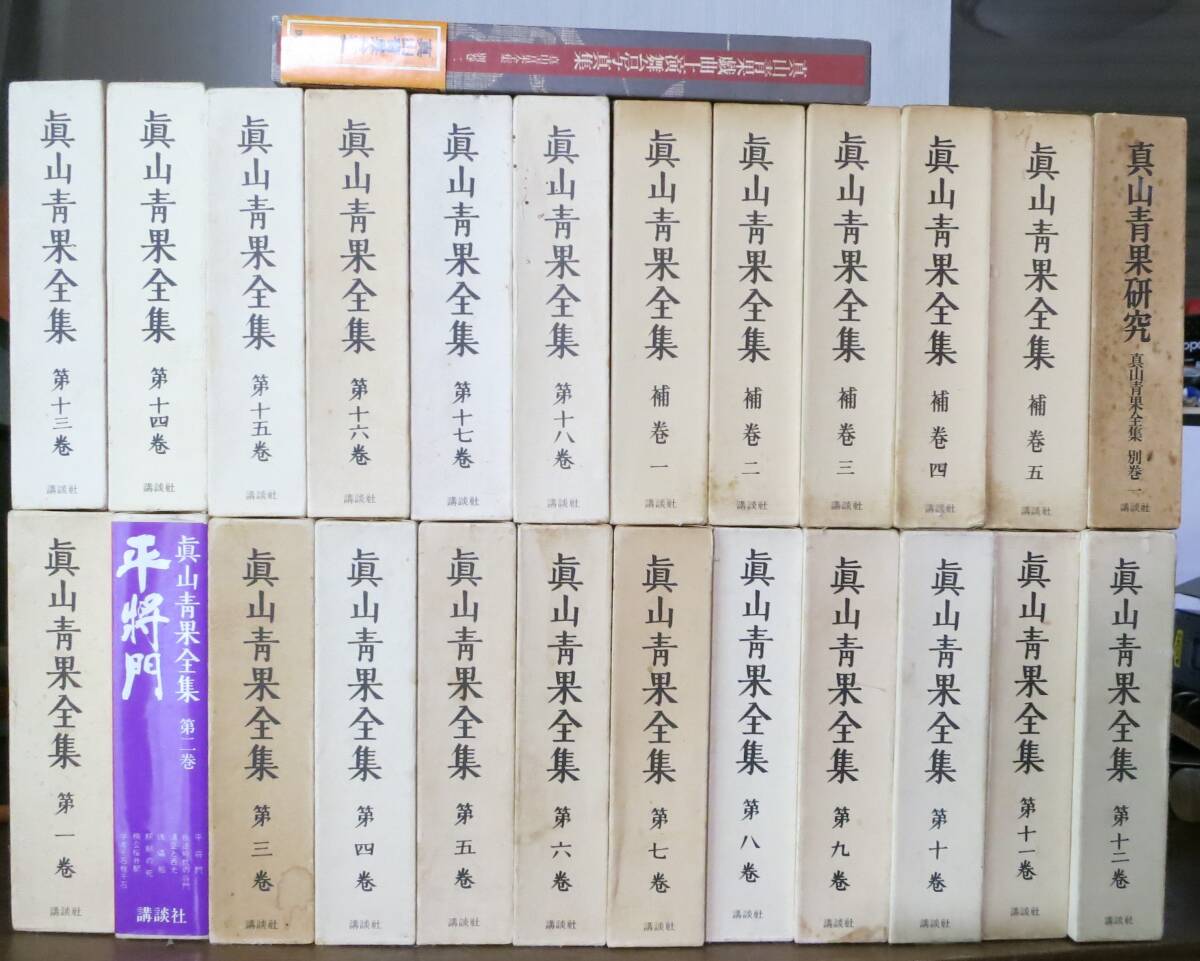 真山青果戯曲上演舞台写真集
真山青果全集 別巻二
眞山青果全集 第十三巻 講談社
眞山青果全集 第十四巻 講談社
眞山青果全集 第十五巻 講談社
眞山青果全集 第十六巻 講談社
眞山青果全集 第十七巻 講談社
眞山青果全集 第十八巻 講談社
眞山青果全集 補巻一 講談社
眞山青果全集 補巻二 講談社
眞山青果全集 補巻三 講談社
眞山青果全集 補巻四 講談社
眞山青果全集 補巻五 講談社
真山青果研究
真山青果全集 別巻一
講談社
眞山青果全集 第一巻 講談社
眞山青果全集 第二巻
平將門
平將門
講談社
眞山青果全集 第三巻 講談社
眞山青果全集 第四巻 講談社
眞山青果全集 第五巻 講談社
眞山青果全集 第六巻 講談社
眞山青果全集 第七巻 講談社
眞山青果全集 第八巻 講談社
眞山青果全集 第九巻 講談社
眞山青果全集 第十巻 講談社
眞山青果全集 第十一巻 講談社
眞山青果全集 第十二巻 講談社